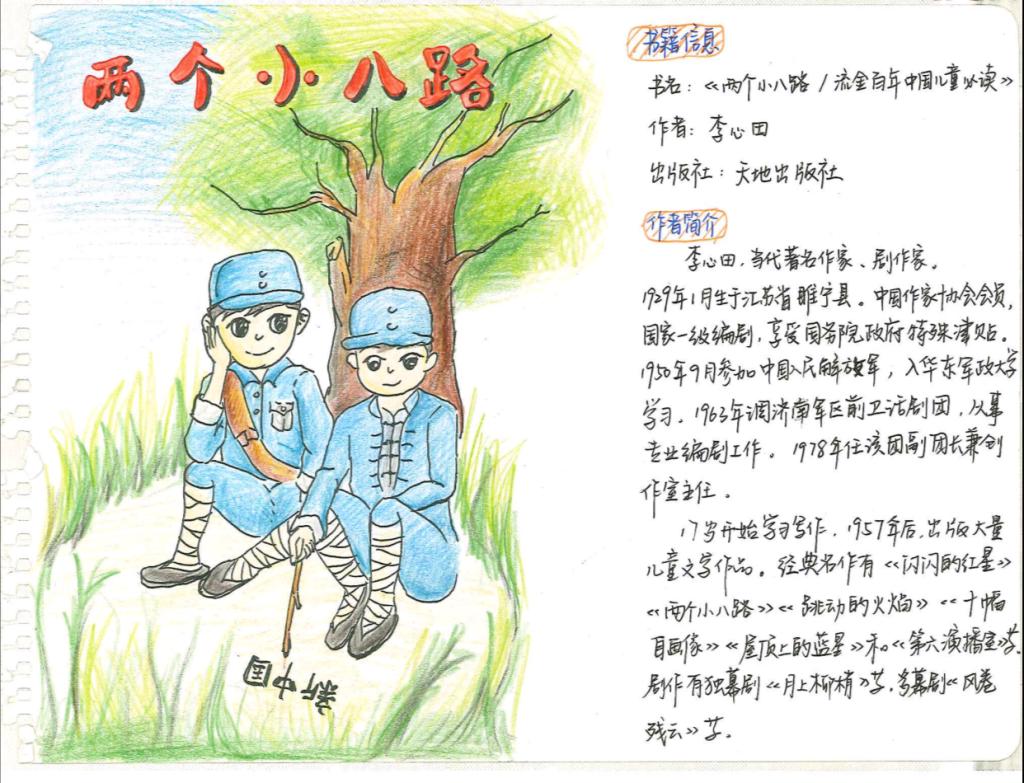 两个小八路
新中国
书籍信息
书名：《两个小八路/流金百年中国儿童必读》
作者：李心田
出版社：天地出版社
作者简介
李心田，当代著名作家、剧作家。
1929年1月生于江苏省睢宁县。中国作家协会会员，
国家一级编剧，享受国务院政府特殊津贴。
1950年9月参加中国人民解放军，入华东军政大学
学习。1963年调济南军区前卫话剧团，从事
专业编剧工作。1978年任该团副团长兼创
作室主任。
17岁开始学习写作，1957年后，出版大量
儿童文学作品。经典名作有《闪闪的红星》
《两个小八路》《跳动的火焰》《十幅
自画像》《屋顶上的蓝星》和《第六演播室》等.
剧作有独幕剧《月上柳梢》等，多幕剧《风卷
残云》等。